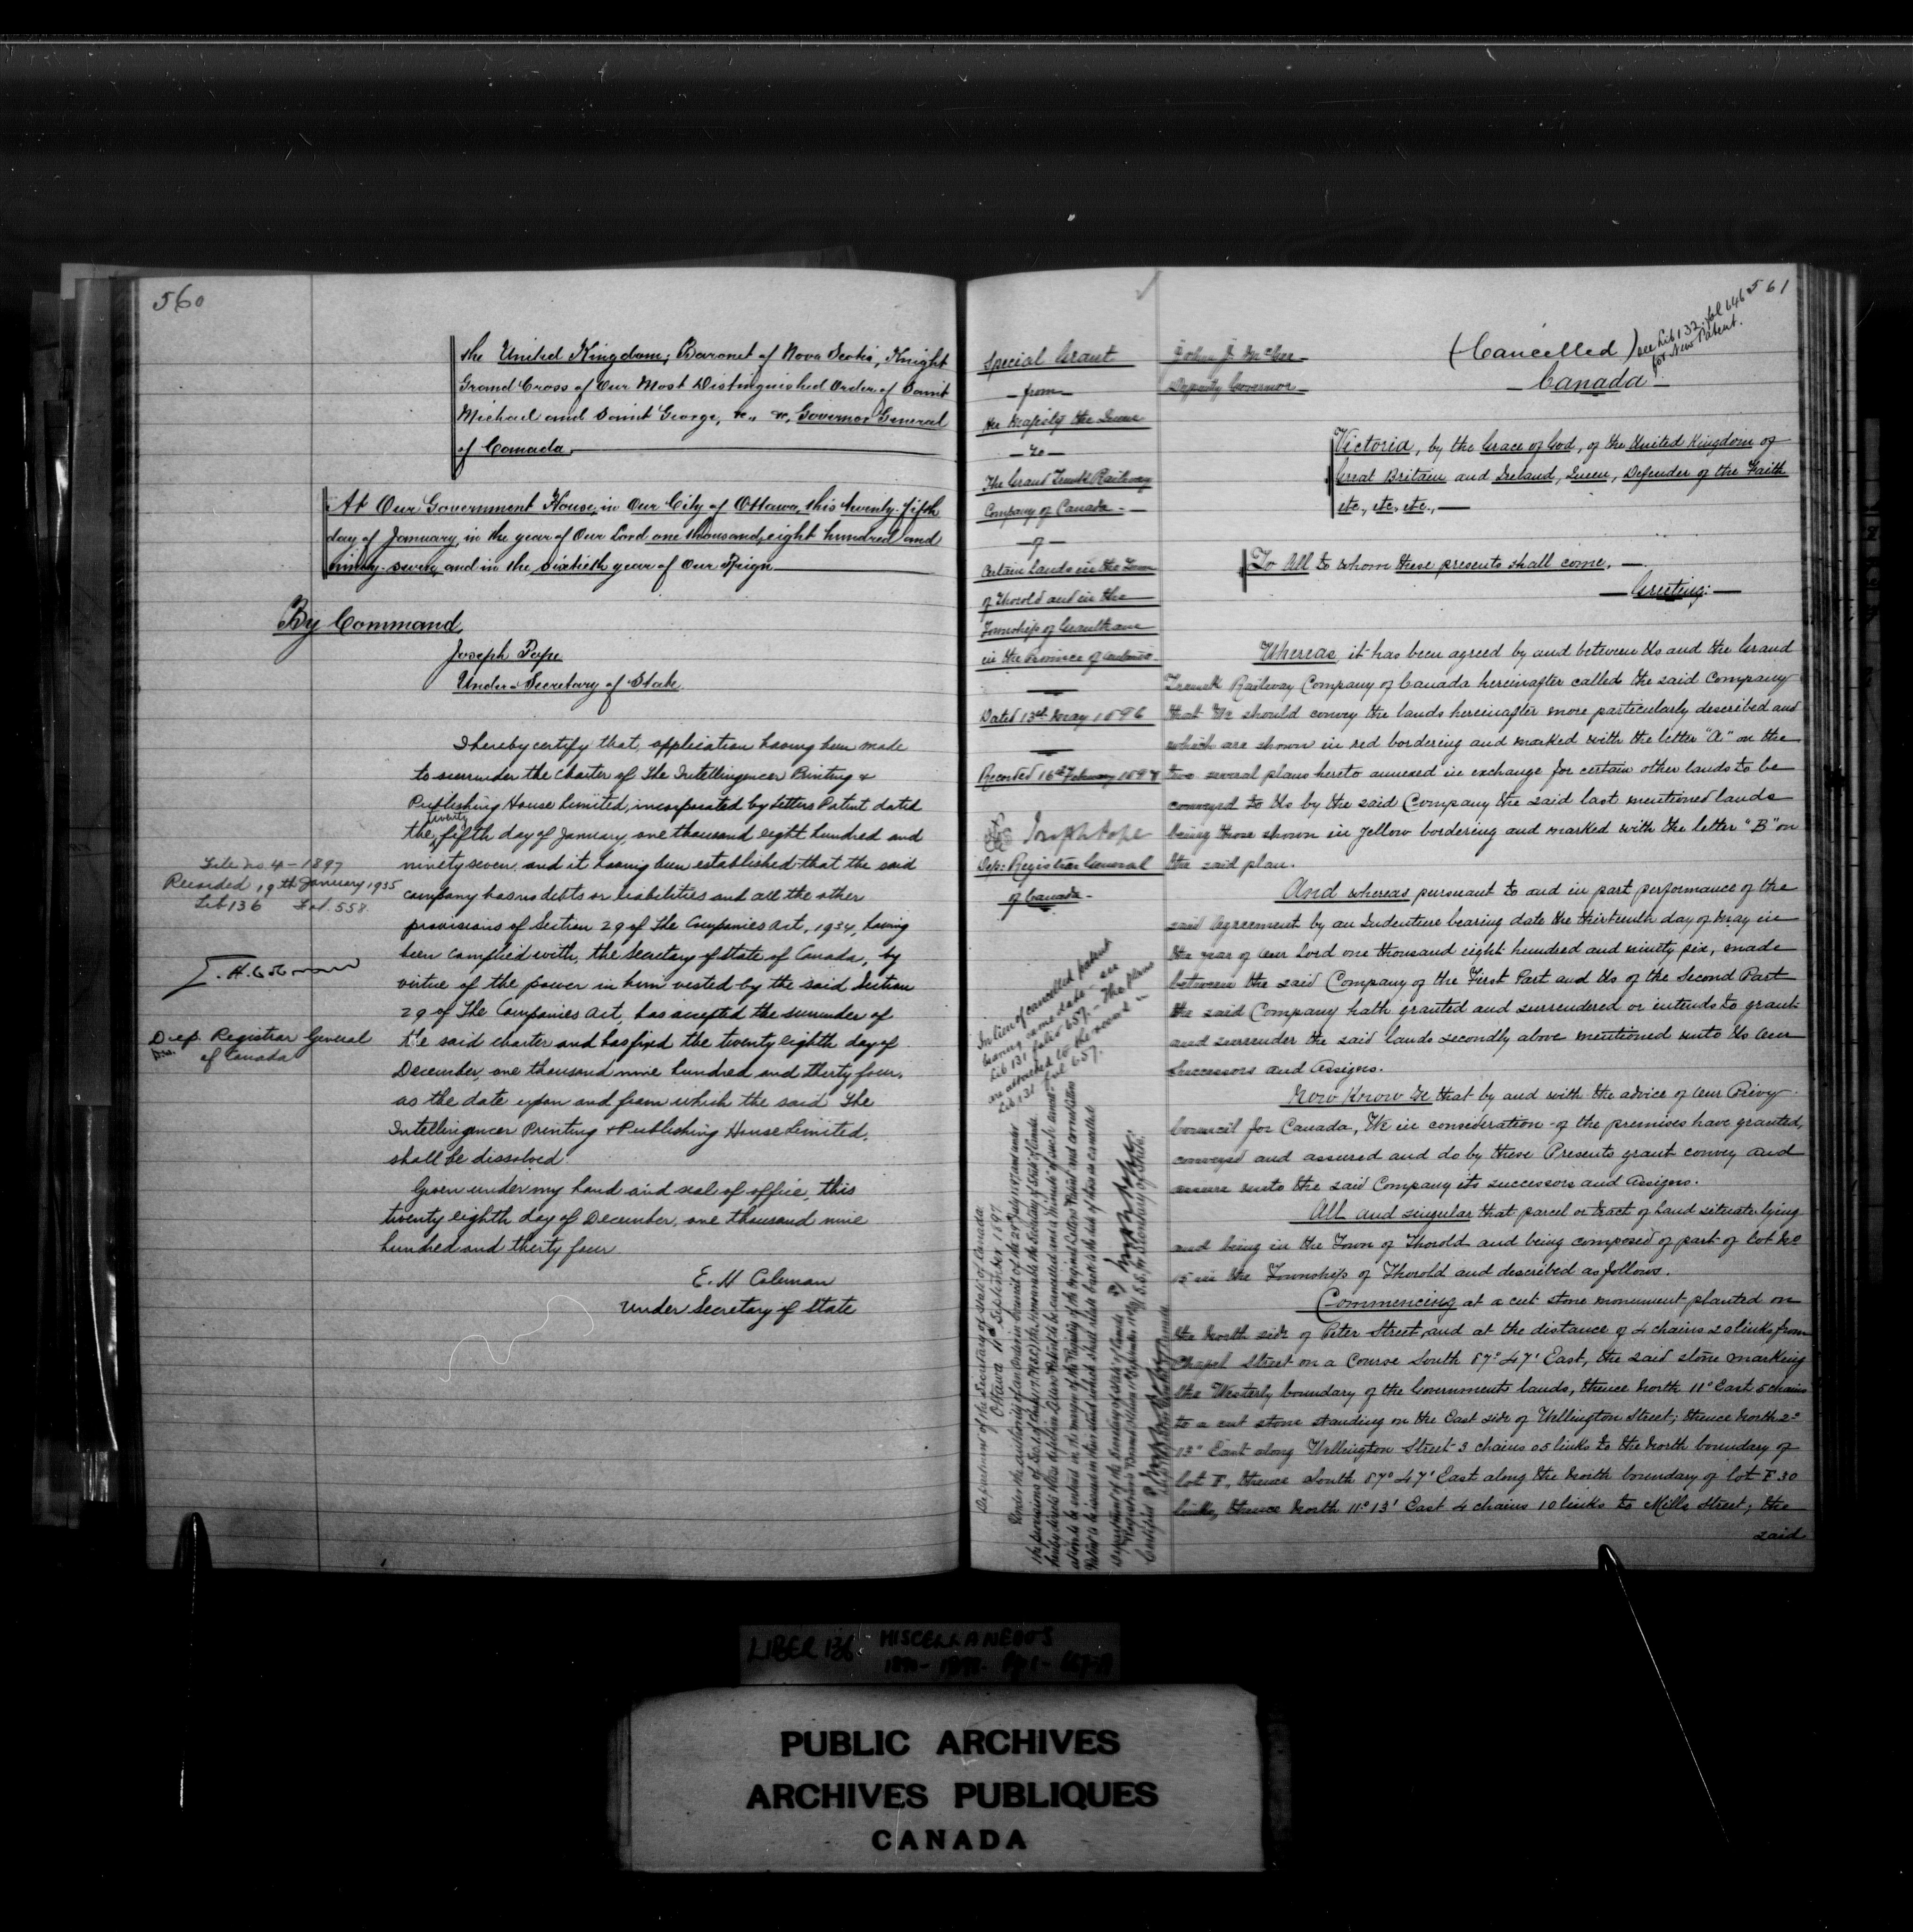 560
the United Kingdom; Baronet of Nova Scotia, Knight
Grand Cross of Our Most Distinguished Order of Saint
Michael and Saint George, &c., &c, Governor General
of Canada.
At Our Government House, in Our City of Ottawa, this twenty-fifth
day of January, in the year of Our Lord one thousand, eight hundred and
ninety-seven, and in the sixtieth year of Our Reign
By Command,
Joseph Pope
Under-Secretary of State.
I hereby certify that, application having been made
to surrender the charter of The Intelligencer Printing &
Publishing House Limited, incorporated by Letters Patent dated
the twenty fifth day of January, one thousand eight hundred and
ninety seven, and it having been established that the said
company has no debts or liabilities and all the other
provisions of Section 29 of The Companies Act, 1934, having
been complied with, the Secretary of State of Canada, by
virtue of the power in him vested by the said Section
29 of The Companies Act, has accepted the surrender of
the said charter and has fixed the twenty eighth day of
December, one thousand nine hundred and thirty four,
as the date upon and from which the said The
Intelligencer Printing & Publishing House Limited,
shall be dissolved.
Given under my hand and seal of office, this
twenty eighth day of December, one thousand nine
hundred and thirty four
E. H Coleman
Under Secretary of State
File No 4-1897
Recorded 19th January 1935
Lib 136 Fol. 558
Dep. Registrar General
of Canada
561
Special Grant
from
Her Majesty the Queen
to
The Grand Trunk Railway
Company of Canada.
of
Certain Lands in the Town
of Thorold and in the
Township of Grantham
in the Province of Ontario.
Dated 13th May 1896
Recorded 16th February 1897
Joseph Pope
Dep: Registrar General
of Canada.
In lieu of cancelled patent
bearing same date in
Lib 131 folio 657. The plans
are attached to the record in
Lib 131 fol 657.
Department of the Secretary of State of Canada
Ottawa 11th September 1897
John J. McGee
Deputy Governor
(Cancelled) see Lib 132. fol 646
for New Patent.
Canada
Victoria, by the Grace of God, of the United Kingdom of
Great Britain and Ireland, Queen, Defender of the Faith
etc., etc., etc.,
To All to whom these presents shall come.
Greeting:
Whereas it has been agreed by and between Us and the Grand
Trunk Railway Company of Canada hereinafter called the said Company
that We should convey the lands hereinafter more particularly described and
which are shown in red bordering and marked with the letter "A" on the
two several plans hereto annexed in exchange for certain other lands to be
conveyed to Us by the said Company the said last mentioned lands
being those shown in yellow bordering and marked with the letter "B" on
the said plan.
And whereas pursuant to and in part performance of the
said Agreement by an Indenture bearing date the thirteenth day of May in
the year of Our Lord one thousand eight hundred and ninety six, made
between the said Company of the First Part and Us of the Second Part
the said Company hath granted and surrendered or intends to grant
and surrender the said lands secondly above mentioned unto Us Our
Successors and Assigns.
Now Know Ye that by and with the advice of Our Privy
Council for Canada, We in consideration of the premises have granted,
conveyed and assured and do by these Presents grant convey and
assure unto the said Company its successors and Assigns.
All and singular that parcel or tract of land situate lying
and being in the Town of Thorold and being composed of part of Lot No
15 in the Township of Thorold and described as follows.
Commencing at a cut stone monument planted on
the North side of Peter Street and at the distance of 4 chains 20 links from
Chapel Street on a Course South 87° 47' East, the said stone marking
the Westerly boundary of the Governments lands, thence North 11° East 5 chains
to a cut stone standing on the East side of Wellington Street; thence North 2°
13' East along Wellington Street 3 chains 05 links to the North boundary of
lot F, thence South 87° 47' East along the North boundary of lot F 30
links, thence North 11° 13' East 4 chains 10 links to Mills Street, the
said
LIBER 136 MISCELLANEOUS
PUBLIC ARCHIVES
ARCHIVES PUBLIQUES
CANADA